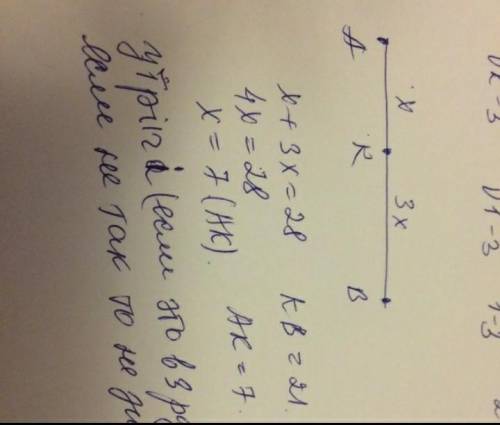 A x K 3x B
x + 3x = 28 KB = 21.
4x = 28
x = 7 (AK). AK = 7.
(если это в 3
если не так то не